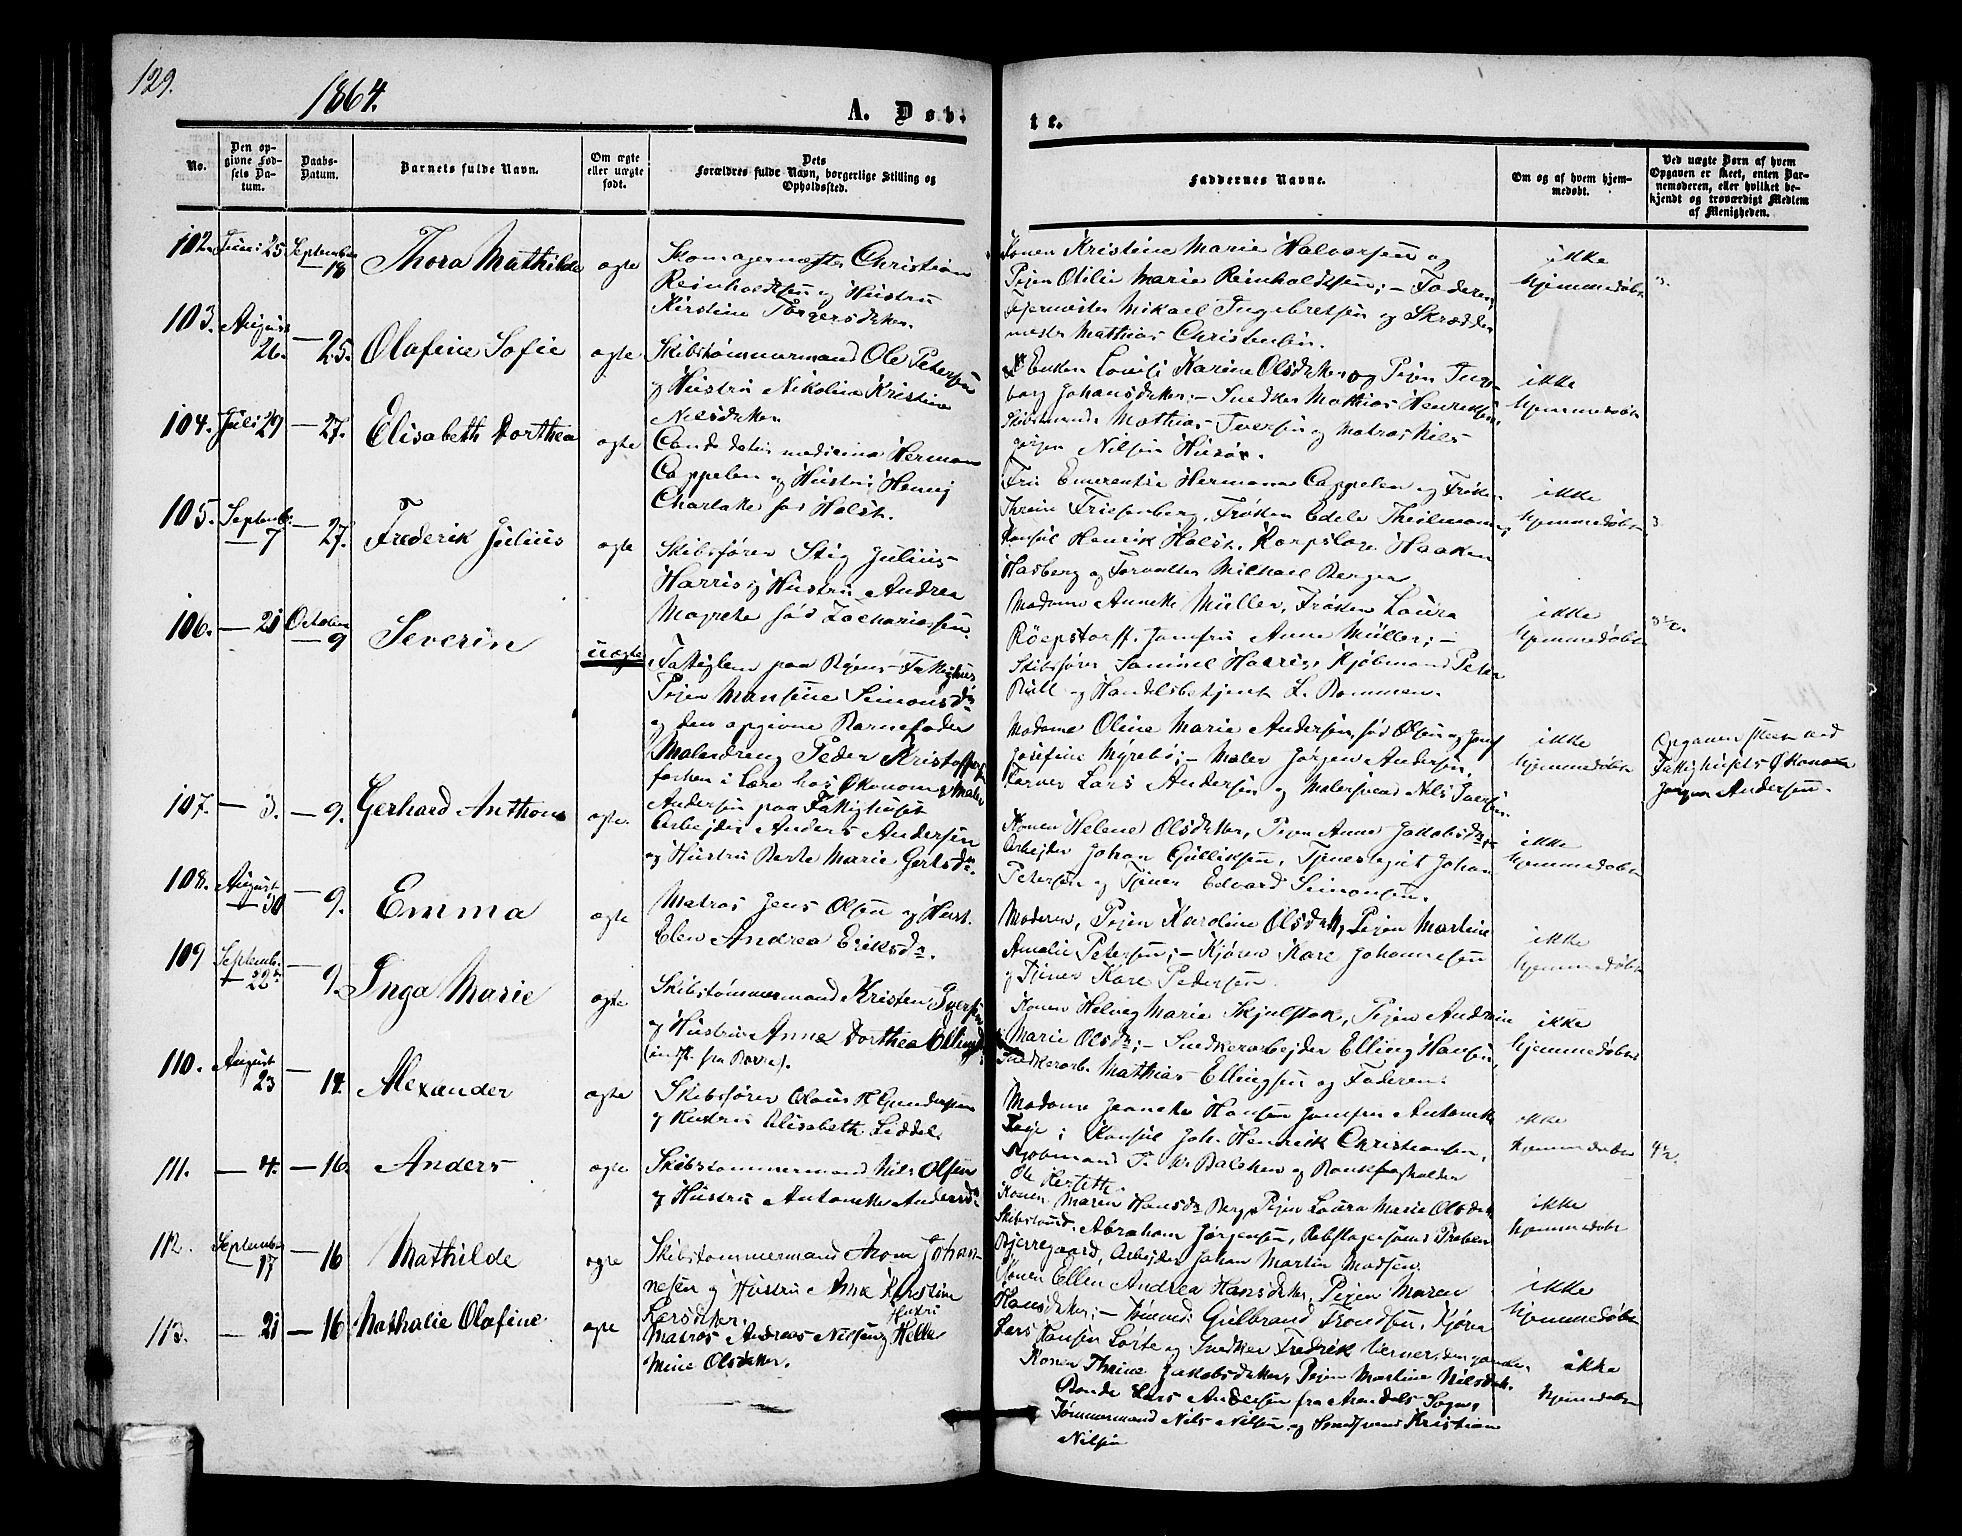 129.
1864.
A. Døb-
te.
No.
Den opgivne Fødsels Datum.
Daabs-Datum.
Barnets fulde Navn.
Om ægte eller uægte født.
Dets Forældres fulde Navn, borgerlige Stilling og Opholdssted.
Faddernes Navne.
Om og af hvem hjemmedøbt.
Ved uægte Børn af hvem Opgaven er skeet, enten Barnemoderen, eller hvilket bekjendt og troværdigt Medlem af Menigheden.
102. Juni 25 September 18 Thora Mathilde ægte
Skomagermester Christian
Reinholdtsen og Hustru
Kirstine Torgersdatter.
Konen Kristine Marie Halvorsen og
Pigen Otilie Marie Reinholdtsen; - Faderen,
Mikael Ingebretsen og Skrædder
mester Mathias Christensen.
ikke
hjemmedøbt
103. August 26. — 25. Olafine Sofie ægte
Skibstømmermand Ole Petersen
og Hustru Nikoline Kristine
Nilsdatter
Enken Lovise Karine Olsdatter og Pigen Inge-
borg Johansdatter; - Snedker Mathias Henriksen,
Mathias Iversen og Matros Nils
Nilsen
ikke
hjemmedøbt
104. Juli 29 — 27. Elisabeth Dorthea ægte
Candidatus medicinæ Herman
Cappelen og Hustru Henny
Charlotte fød Holst.
Fru Emerentse Hermana Cappelen og Frøken
Thrine Friesenberg, Frøken Edele Theilmann,
Konsul Henrik Holst, Korpslæge Haaken
Hasberg og Forvalter Mikkael Berger.
ikke
hjemmedøbt
105. Septemb. 7 — 27. Frederik Julius ægte
Skibsfører Stig Julius
Harris og Hustru Andrea
Magrete fød Zachariassen.
Madame Annette Müller, Frøken Laura
Röepstorff, Jomfru Anne Müller; -
Skibsfører Samuel Harris, Kjøbmand Peter
Bull og Handelsbetjent L. Bommen.
ikke
hjemmedøbt
106. — 21 October 9 Severin uægte
Fattiglem paa Byens Fattighus
Pigen Mansine Simonsdr
og den opgivne Barnefader
Malerdreng Peder Kristoffersen
forhen i Lære hos Økonom og Maler
Andersen paa Fattighuset
Madame Oline Marie Andersen, fød Olsen og Jomf
Josefine Myrebø; - Maler Jørgen Andersen,
Farver Lars Andersen og Malersvend Nils Iversen.
ikke
hjemmedøbt
Opgaven skeet ved
Fattighusets Økonom
Jørgen Andersen.
107. — 3. — 9. Gerhard Anthon ægte.
Arbejder Anders Andersen
og Hustru Berte Marie Gertsdr.
Konen Helene Olsdatter, Pigen Anne Jakobsdr; -
Arbejder Johan Gulliksen, Tjenestegut Johan
Petersen og Tjener Edvard Simonsen.
ikke
hjemmedøbt
108. August 30 — 9. Emma ægte
Matros Jens Olsen og Hust.
Elen Andrea Eriksdr.
Moderen, Pigen Karoline Olsdatt., Pigen Martine
Amalie Petersen; - Kjører Karl Johannesen
og Tjener Karl Pedersen.
ikke
hjemmedøbt
109 Septemb. 22 — 9. Inga Marie ægte
Skibstømmermand Kristen Iversen
og Hustru Anne Dorthea Ellingsd
(indfl. fra Borre).
Konen Helvig Marie Skjulstad, Pigen Andrine
Marie Olsdr; - Snedkerarbejder Elling Hansen,
Snedkerarb. Mathias Ellingsen og Faderen.
ikke
hjemmedøbt
110. August 23 — 14. Alexander ægte
Skibsfører Olaus H Gundersen
og Hustru Elisabeth Liddel.
Madame Jeanette Hansen, Jomfru Antonette
Foyn; Konsul Joh. Henrik Christiansen,
Kjøbmand T. W. Balchen og Bankbogholder
Ole Herseth.
ikke
hjemmedøbt
111. — 4. — 16. Anders ægte
Skibstømmermand Nils Olsen
og Hustru Antonette Andersdr
Konen Maren Hansdr Berg, Pigen Laura Marie Olsdatt
Abraham Jørgensen, Rebslagersvend Preben
Bjerregaard, Arbejder Johan Martin Madsen.
ikke
hjemmedøbt
112. September 17 — 16 Mathilde ægte
Skibstømmermand Aron Johan-
nesen og Hustru Anne Kirstine
Larsdatter.
Konen Ellen Andrea Hansdatter, Pigen Maren
Hansdatter; - Gulbrand Trondsen, Kjører
Lars Hansen Lørte og Snedker Fredrik Verner.
ikke
hjemmedøbt
113. — 21 — 16 Nathalie Olafine ægte
Matros Andreas Nilsen og Hustru Helle
Mine Olsdatter.
Konen Thrine Jakobsdatter, Pigen Martine Nilsdatt.
Bonde Lars Andersen fra Arendals Sogn,
Tømmermand Nils Nilsen og Kristian
Nilsen
ikke
hjemmedøbt